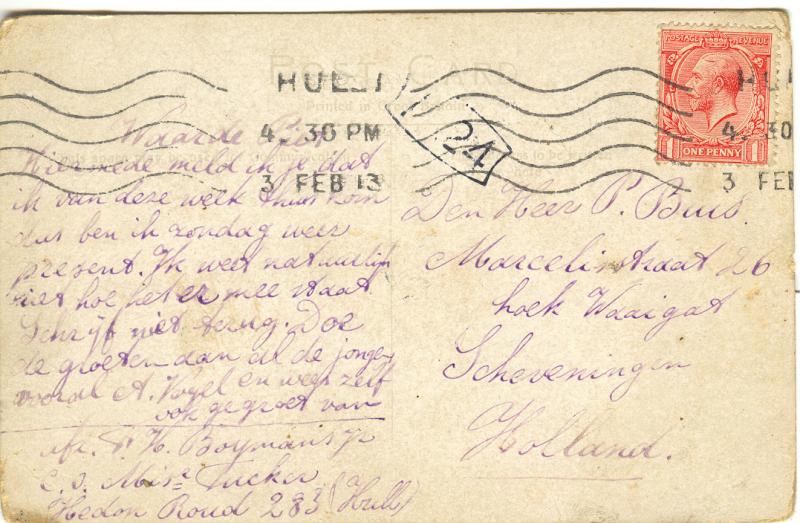 POST CARD
Printed in
POSTAGE REVENUE
1 ONE PENNY 1
HULL
4. 30 PM
3 FEB 13
24
4. 30
3 FEB
Waarde Piet
Hiermede meld ik je dat
ik van deze week thuis kom
dus ben ik zondag weer
present. Ik weet natuurlijk
niet hoe het er mee staat
Schrijf niet terug. Doe
de groeten aan al de jongens
vooral A. Vogel en wees zelf
ook gegroet van
H. Boymans Jr
Miss Tucker
Hedon Road 283 (Hull)
Den Heer P. Buis.
Marcelinstraat 26
hoek Waaigat
Scheveningen
Holland.